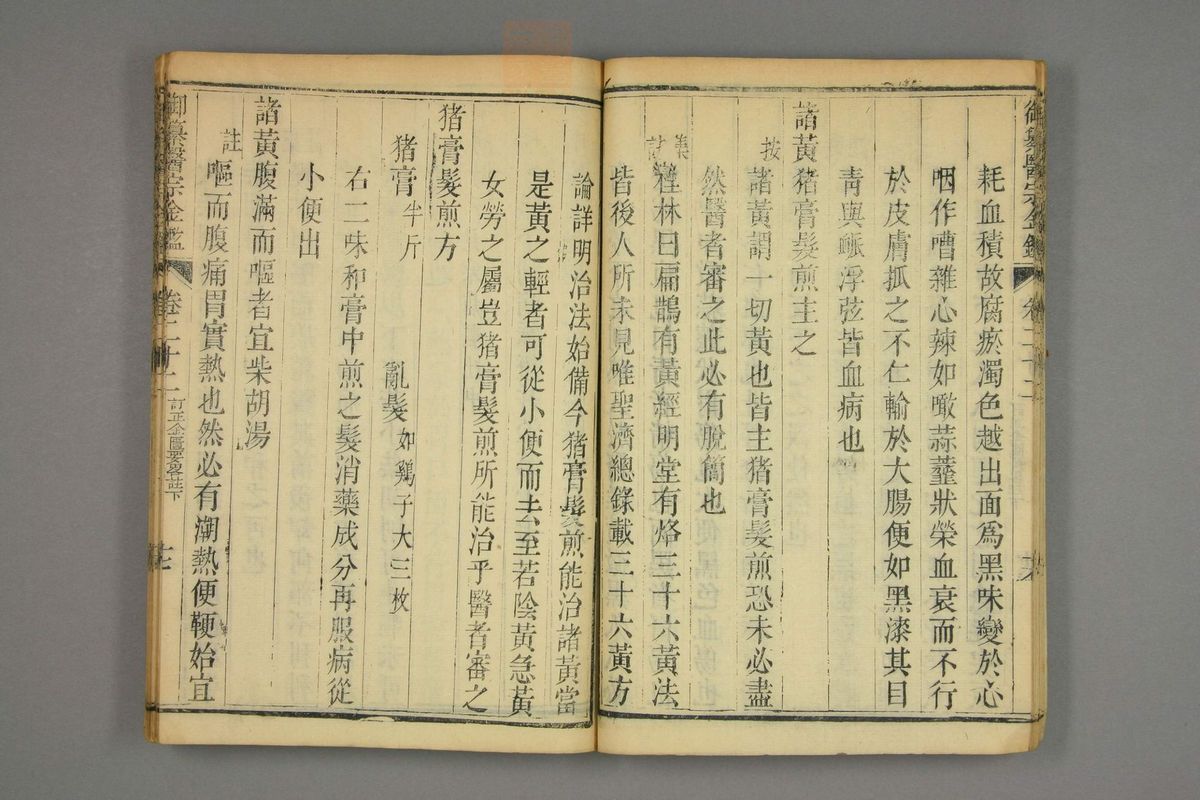 御纂醫宗金鑑 卷二十二 六
耗血積故腐瘀濁色越出面爲黑味變於心
咽作嘈雜心辣如噉蒜虀狀榮血衰而不行
於皮膚抓之不仁輸於大腸便如黑漆其目
靑與脈浮弦皆血病也
諸黃猪膏髮煎主之
按 諸黃謂一切黃也皆主猪膏髮煎恐未必盡
然醫者審之此必有脫簡也
集註 程林曰扁鵲有黃經明堂有烙三十六黃法
皆後人所未見唯聖濟總錄載三十六黃方
論詳明治法始備今猪膏髮煎能治諸黃當
是黃之輕者可從小便而去至若陰黃急黃
女勞之屬豈猪膏髮煎所能治乎醫者審之
猪膏髮煎方
猪膏半斤 亂髮如鷄子大三枚
右二味和膏中煎之髮消藥成分再服病從
小便出
諸黃腹滿而嘔者宜柴胡湯
註 嘔而腹痛胃實熱也然必有潮熱便鞕始宜
御纂醫宗金鑑 卷二十二 訂正金匱要畧註下 七